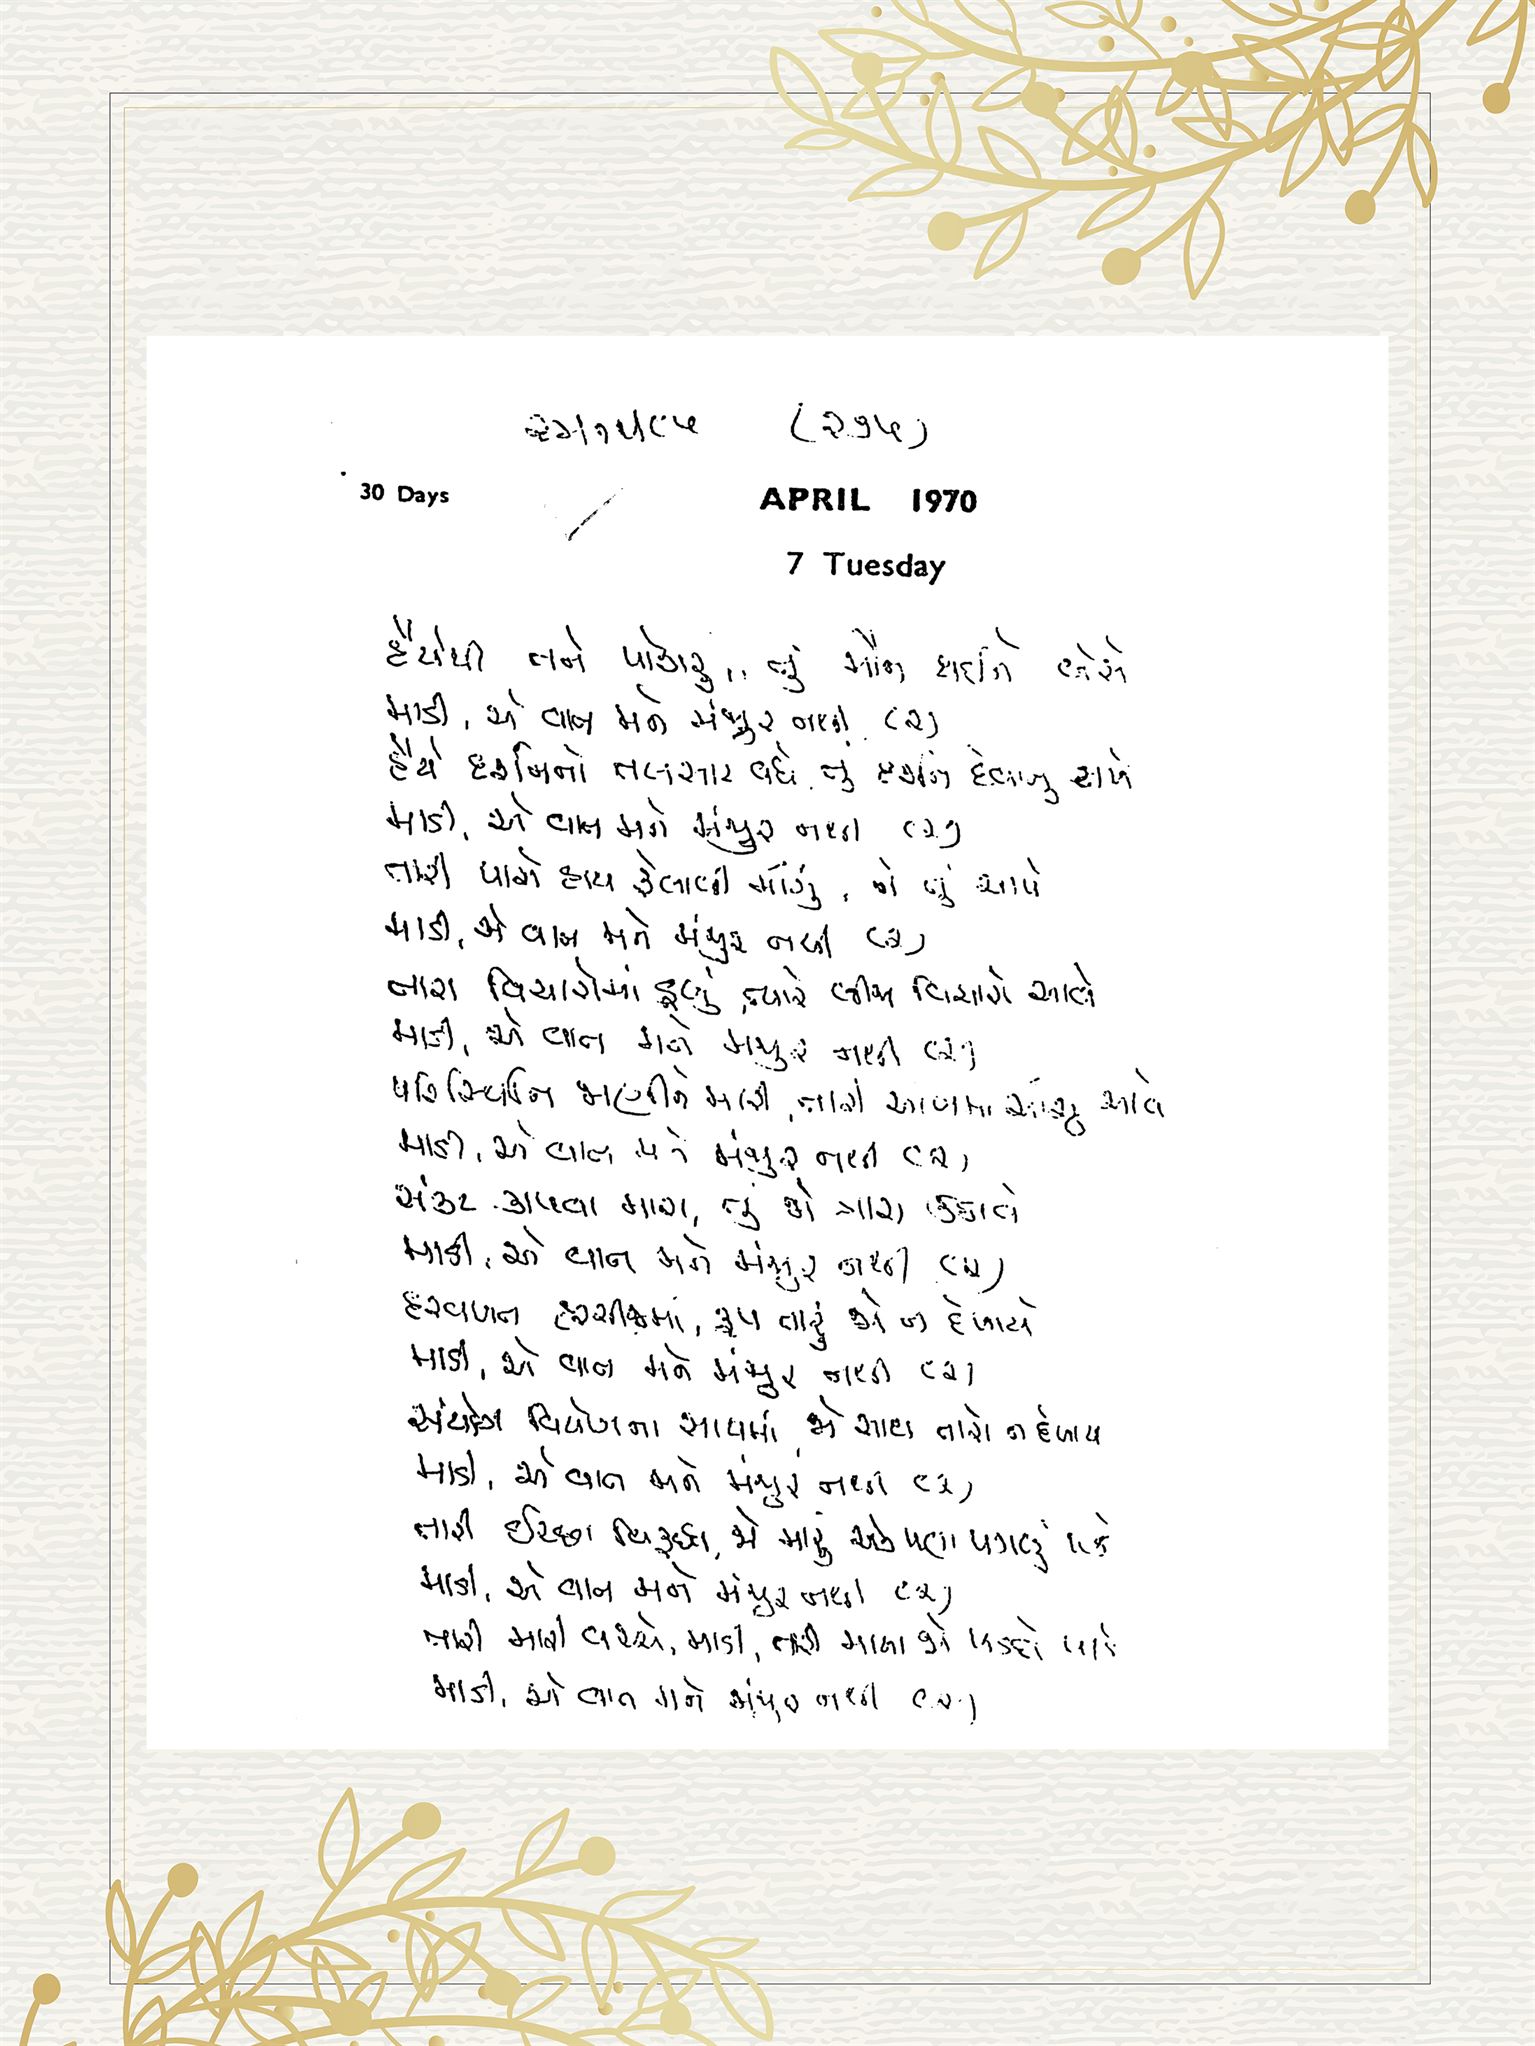 (૨૭૫)
30 Days
APRIL 1970
7 Tuesday
હૈયેથી તને પોકારું,.. તું મૌન થઈને બેસે
માડી, એ વાત મને મંજુર નથી (૨)
હૈયે દર્શનનો તલસાટ વધે તું દર્શન દેવાનુ રાખે
માડી, એ વાત મને મંજુર નથી (૨)
તારી પાસે હાથ ફેલાવી માંગું, ને તું આપે
માડી, એ વાત મને મંજુર નથી (૨)
તારા વિચારોમાં ડૂબું, ત્યારે બીજા વિચારો આવે
માડી, એ વાત મને મંજુર નથી (૨)
પરિસ્થિતિ જાણીને મારી, તારી આંખમાં આંસુ આવે
માડી, એ વાત મને મંજુર નથી (૨)
સંકટ કાપવા મારા, તું જો મારા
માડી, એ વાત મને મંજુર નથી (૨)
હરવખત હરચીજમાં, રૂપ તારું જો ન દેખાયે
માડી, એ વાત મને મંજુર નથી (૨)
સંયોગ વિયોગના સાથમાં, જો સાથ તારો ન દેખાય
માડી, એ વાત મને મંજુર નથી (૨)
તારી ઈચ્છા વિરૂદ્ધ, જો મારું એક પણ પગલું પડે
માડી, એ વાત મને મંજુર નથી (૨)
તારી મારી વચ્ચે, માડી, તારી માયા જો પડદો પાડે
માડી, એ વાત મને મંજુર નથી (૨)